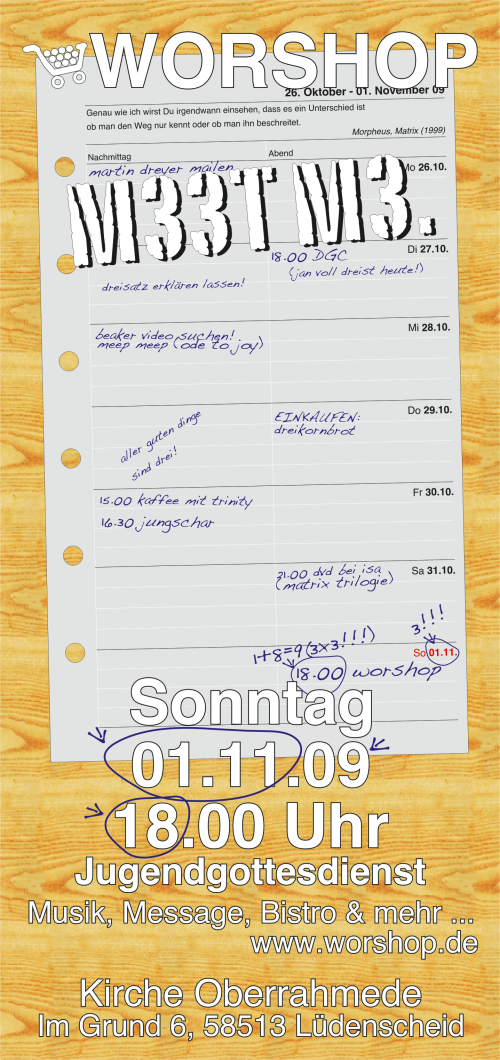 WORSHOP
26. Oktober - 01. November 09
Genau wie ich wirst Du irgendwann einsehen, dass es ein Unterschied ist
ob man den Weg nur kennt oder ob man ihn beschreitet.
Morpheus, Matrix (1999)
Nachmittag Abend
martin dreyer mailen Mo 26.10.
M33T M3.
Di 27.10.
18.00 DGC
(jan voll dreist heute!)
dreisatz erklären lassen!
Mi 28.10.
beaker video suchen!
meep meep (ode to joy)
Do 29.10.
aller guten dinge
sind drei!
EINKAUFEN:
dreikornbrot
Fr 30.10.
15.00 kaffee mit trinity
16.30 jungschar
Sa 31.10.
21.00 dvd bei isa
(matrix trilogie)
3!!!
1+8=9 (3x3!!!)
So 01.11.
18.00 worshop
Sonntag
01.11.09
18.00 Uhr
Jugendgottesdienst
Musik, Message, Bistro & mehr ...
www.worshop.de
Kirche Oberrahmede
Im Grund 6, 58513 Lüdenscheid